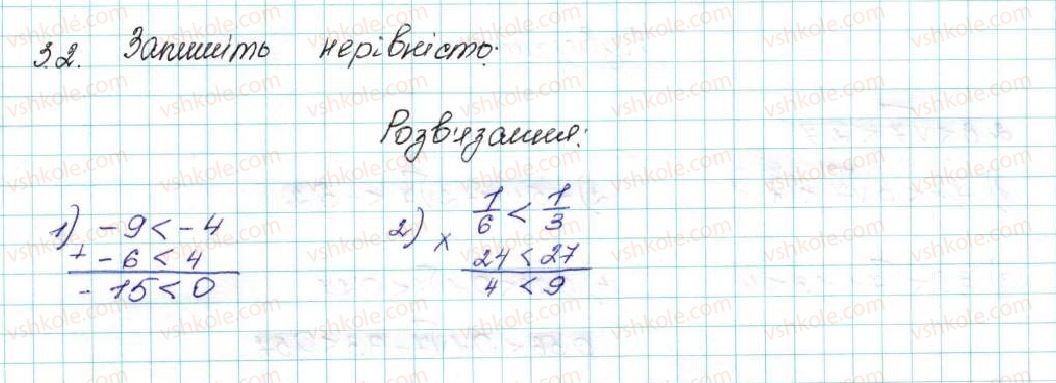 3.2. Запишіть нерівність:
Розв'язання:
1) -9 < -4
+ -6 < 4
-15 < 0
2) × 1/6 < 1/3
24 < 27
4 < 9